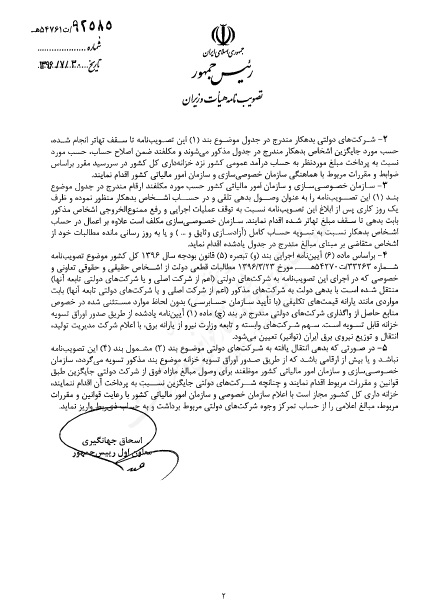 ۹۲۵۸۵/ت۵۴۷۶۱هـ
شماره
جمهوری اسلامی ایران
تاریخ ۱۳۹۶/۷/۳۰
رئیس جمهور
تصویب نامه هیأت وزیران
۲- شرکت‌های دولتی بدهکار مندرج در جدول موضوع بند (۱) این تصویب‌نامه تا سقف تهاتر انجام شده،
حسب مورد جایگزین اشخاص بدهکار مندرج در جدول مذکور می‌شوند و مکلفند ضمن اصلاح حساب، حسب مورد
نسبت به پرداخت مبلغ موردنظر به حساب درآمد عمومی کشور نزد خزانه‌داری کل کشور در سررسید مقرر براساس
ضوابط و مقررات مربوط با هماهنگی سازمان خصوصی‌سازی و سازمان امور مالیاتی کشور اقدام نمایند.
۳- سازمان خصوصی‌سازی و سازمان امور مالیاتی کشور حسب مورد مکلفند ارقام مندرج در جدول موضوع
بند (۱) این تصویب‌نامه را به عنوان وصول بدهی تلقی و در حساب اشخاص بدهکار منظور نموده و ظرف
یک روز کاری پس از ابلاغ این تصویب‌نامه نسبت به توقف عملیات اجرایی و رفع ممنوع‌الخروجی اشخاص مذکور
بابت بدهی تا سقف مبلغ تهاتر شده اقدام نمایند. سازمان خصوصی‌سازی مکلف است علاوه بر اعمال در حساب
بدهکار نسبت به تسویه حساب کامل (آزادسازی وثایق و ..) و یا به روز رسانی مانده مطالبات خود از
اشخاص متقاضی بر مبنای مبالغ مندرج در جدول یادشده اقدام نماید.
۴- براساس ماده (۶) آیین‌نامه اجرایی بند (و) تبصره (۵) قانون بودجه سال ۱۳۹۶ کل کشور موضوع تصویب‌نامه
شماره ۳۳۲۶۳/ت۵۴۲۷۰هـ مورخ ۱۳۹۶/۳/۲۳ مطالبات قطعی دولت از اشخاص حقیقی و حقوقی تعاونی و
خصوصی که در اجرای این تصویب‌نامه به شرکت‌های دولتی (اعم از شرکت اصلی و یا شرکت‌های دولتی تابعه آنها)
منتقل شده است با بدهی دولت به شرکت‌های مذکور (اعم از شرکت اصلی و یا شرکت‌های دولتی تابعه آنها) بابت
مواردی مانند یارانه قیمت‌های تکلیفی (با تأیید سازمان حسابرسی) بدون لحاظ موارد مستثنی شده در خصوص
منابع حاصل از واگذاری شرکت‌های دولتی مندرج در بند (ج) ماده (۱) آیین‌نامه یادشده از طریق صدور اوراق تسویه
خزانه قابل تسویه است. سهم شرکت‌های وابسته و تابعه وزارت نیرو از یارانه برق، با اعلام شرکت مدیریت تولید،
انتقال و توزیع نیروی برق ایران (توانیر) تعیین می‌شود.
۵- در صورتی که بدهی انتقال یافته به شرکت‌های دولتی موضوع بند (۲) مشمول بند (۴) این تصویب‌نامه
نباشد و یا بیش از ارقامی باشد که از طریق صدور اوراق تسویه خزانه موضوع بند مذکور تسویه می‌گردد، سازمان
خصوصی‌سازی و سازمان امور مالیاتی کشور موظفند برای وصول مبالغ مازاد فوق از شرکت دولتی جایگزین طبق
قوانین و مقررات مربوط اقدام نمایند و چنانچه شرکت‌های دولتی جایگزین نسبت به پرداخت آن اقدام ننمایند،
خزانه داری کل کشور مجاز است با اعلام سازمان خصوصی و سازمان امور مالیاتی کشور با رعایت قوانین و مقررات
مربوط، مبالغ اعلامی را از حساب تمرکز وجوه شرکت‌های دولتی مربوط برداشت و به حساب ذی‌ربط واریز نماید.
اسحاق جهانگیری
معاون اول رییس‌جمهور
۲